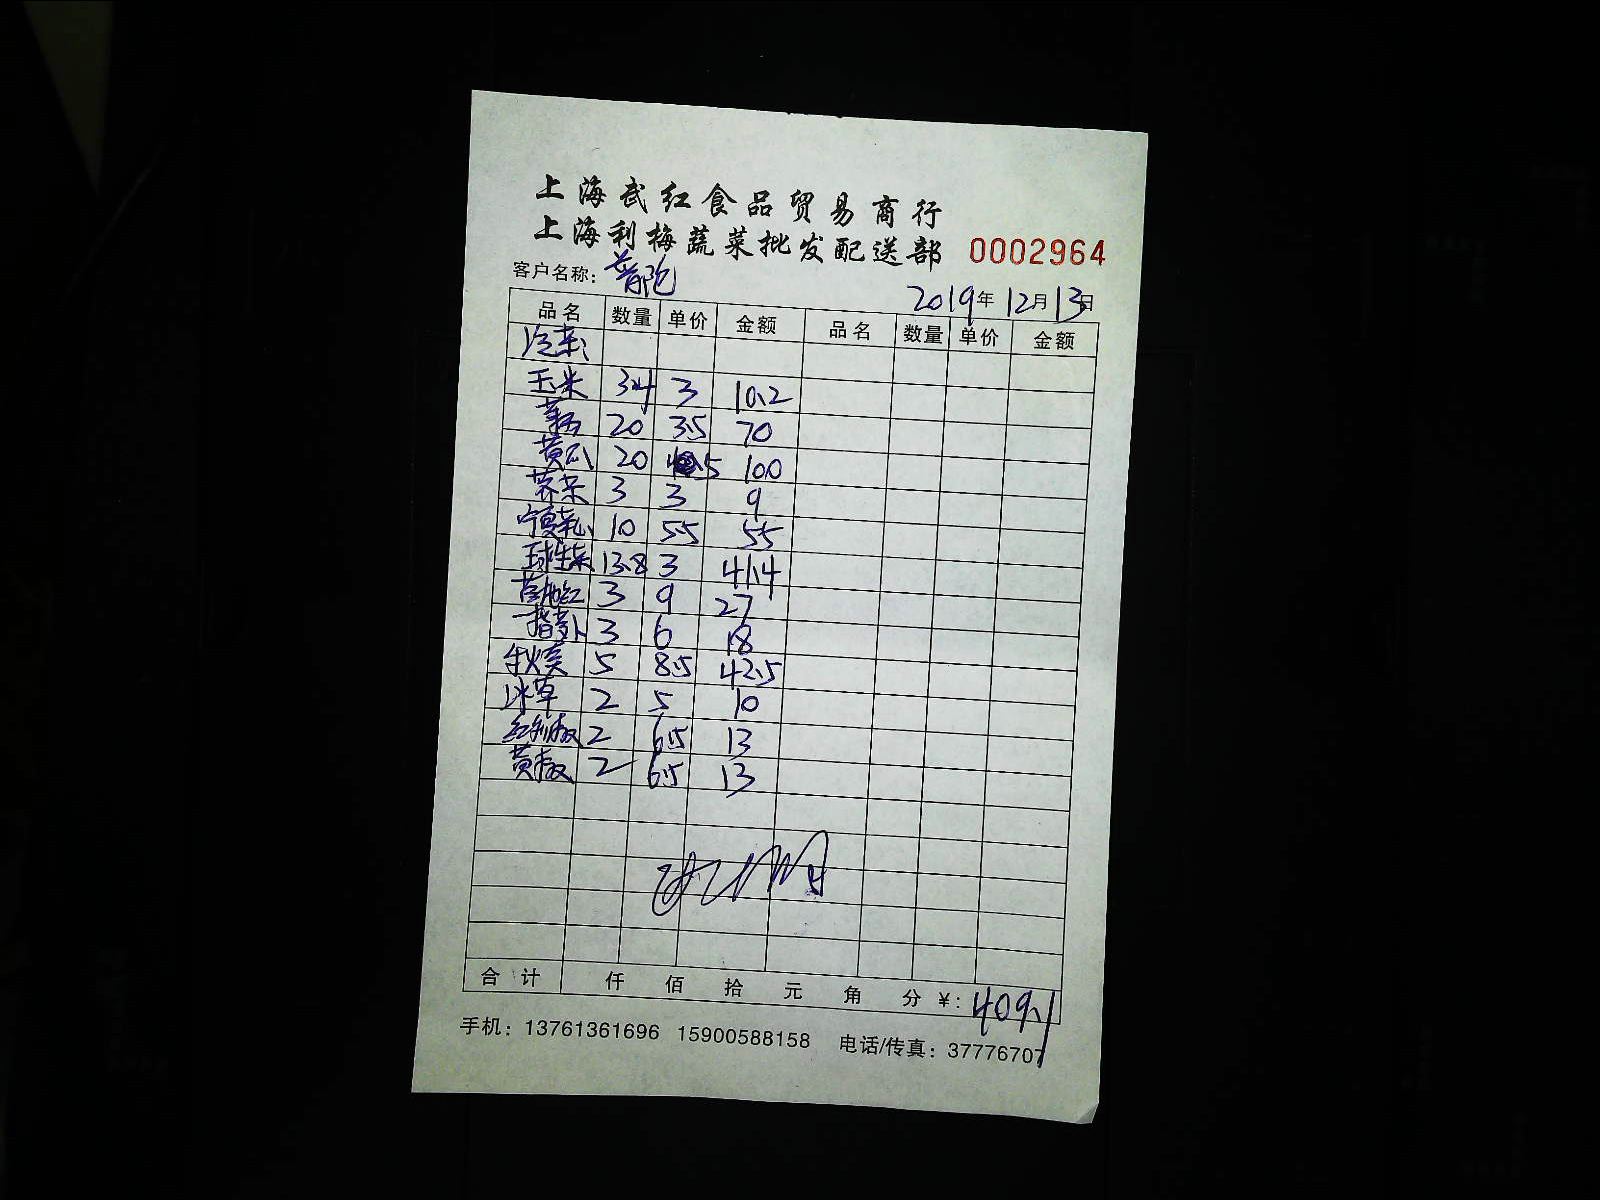 上海武红食品贸易商行
上海利梅蔬菜批发配送部 0002964
客户名称： 普陀
2019年 12月 13日
品名 数量 单价 金额 品名 数量 单价 金额
玉米 3.4 3 10.2
20 3.5 70
黄瓜 20 5 100
3 3 9
宁夏菜心 10 5.5 55
球生菜 13.8 3 41.4
3 9 27
3 6 18
5 8.5 42.5
冰草 2 5 10
2 6.5 13
黄椒 2 6.5 13
合计 仟 佰 拾 元 角 分 ￥: 409.1
手机：13761361696 15900588158 电话/传真：37776707